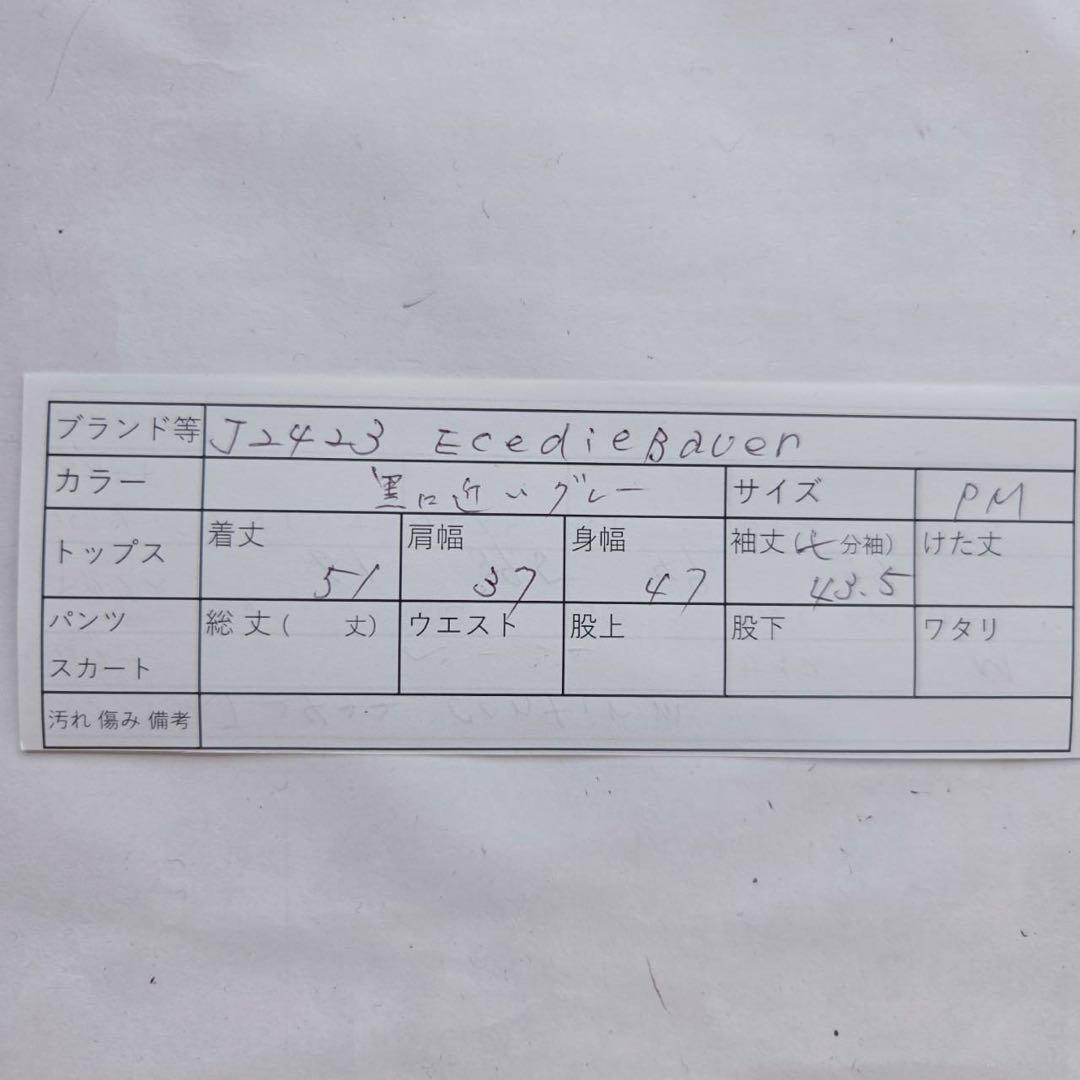 ブランド等 J2423 EcedieBauer
カラー 黒に近いグレー サイズ PM
トップス 着丈 肩幅 身幅 袖丈(七分袖) けた丈
51 37 47 43.5
パンツ 総丈( 丈) ウエスト 股上 股下 ワタリ
スカート
汚れ 傷み 備考